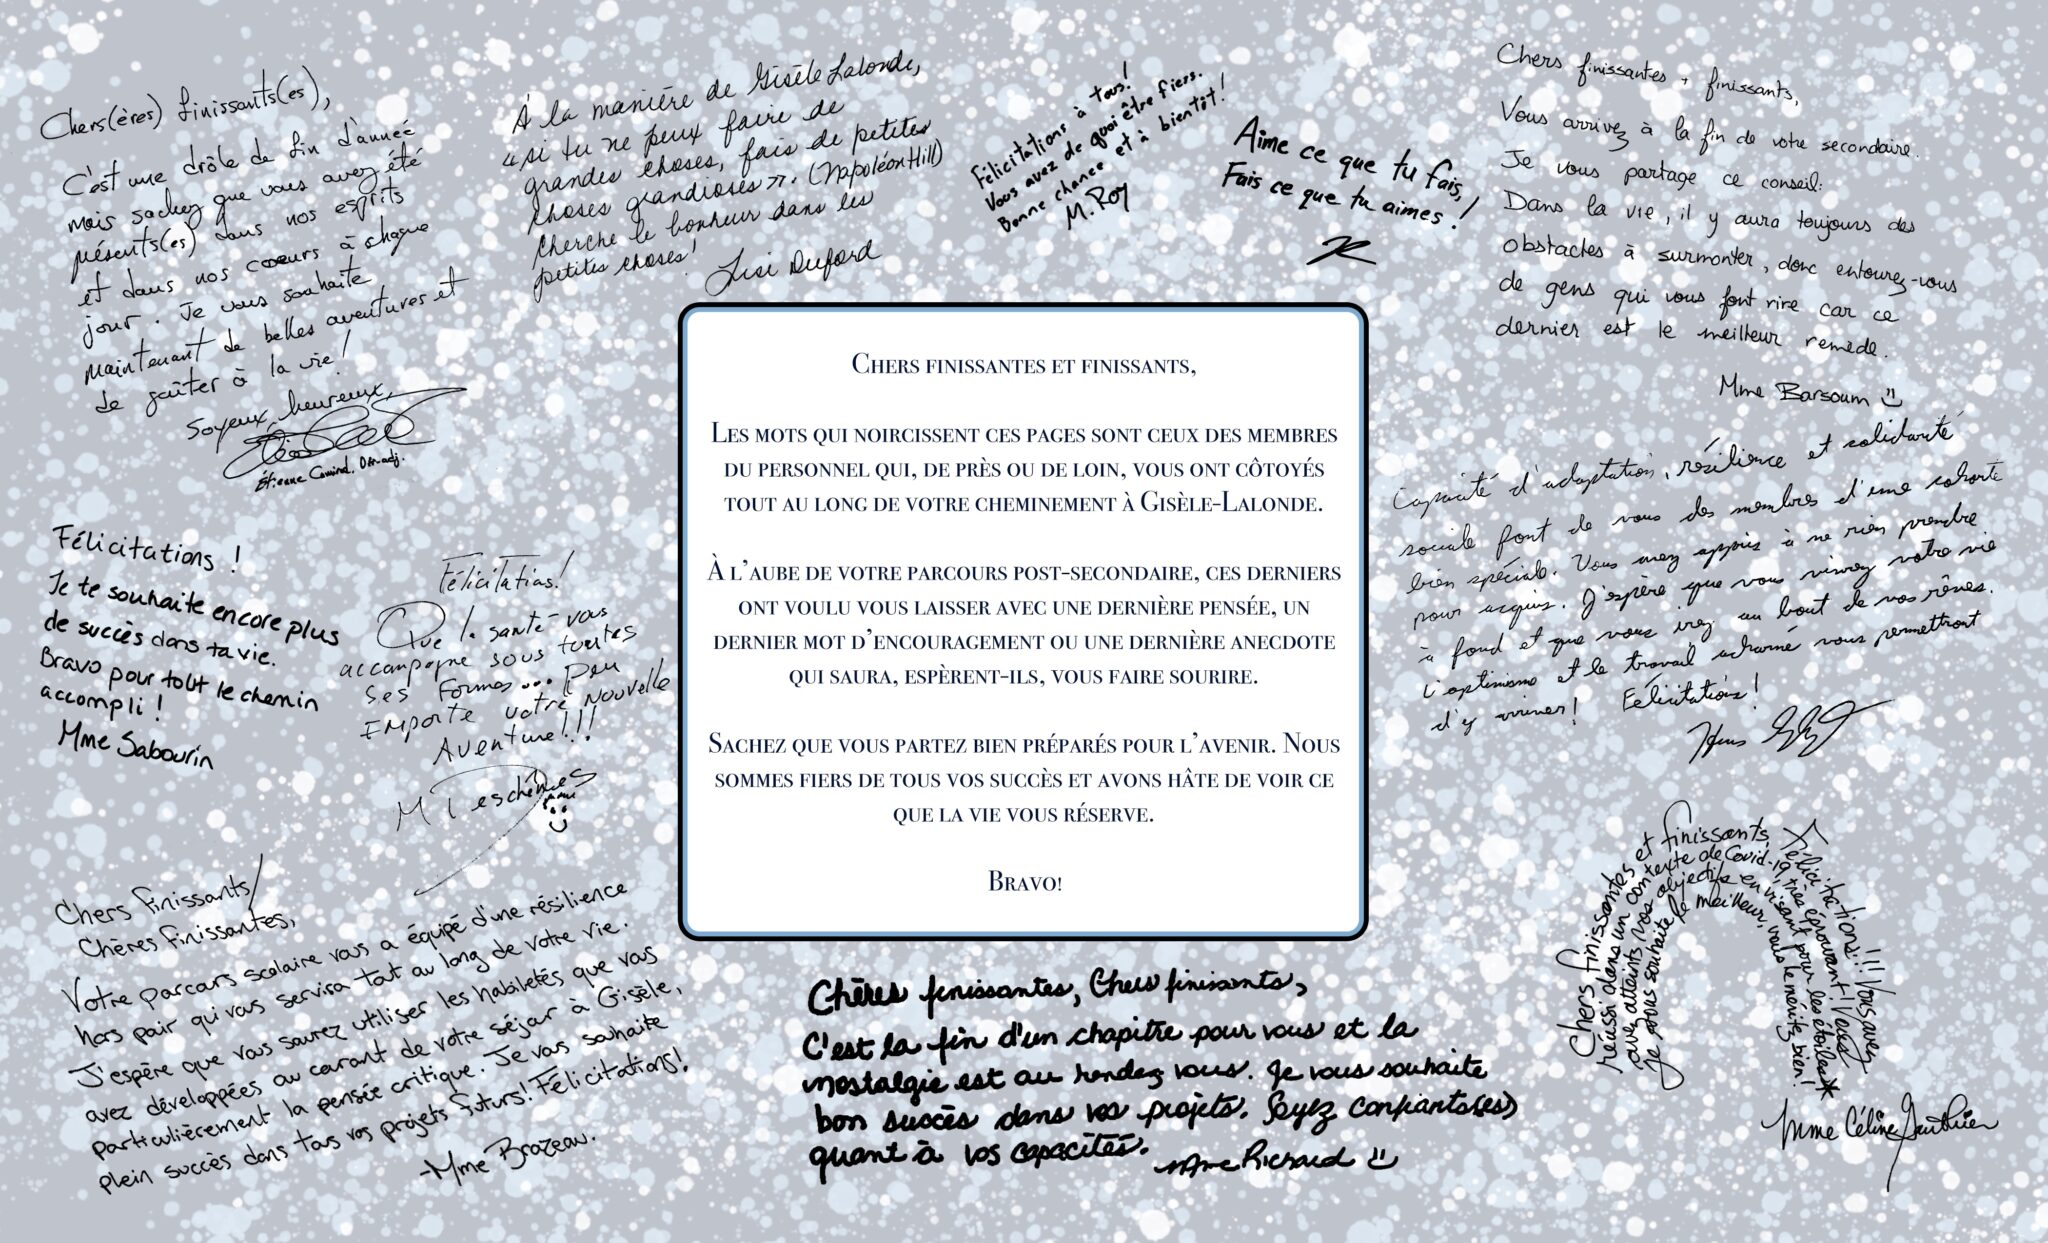 Chers(ères) finissants(es),
C'est une drôle de fin d'année
mais sachez que vous avez été
présents(es) dans nos esprits
et dans nos coeurs à chaque
jour. Je vous souhaite
maintenant de belles aventures et
de goûter à la vie!
Soyeux, heureux,
Étienne Dir-adj.
À la manière de Gisèle Lalonde,
"si tu ne peux faire de
grandes choses, fais de petites
choses grandioses". (Napoléon Hill)
Cherche le bonheur dans les
petites choses!
Lisi Duford
Félicitations à tous!
Vous avez de quoi être fiers.
Bonne chance et à bientôt!
M. Roy
Aime ce que tu fais,
Fais ce que tu aimes!
Chers finissantes + finissants,
Vous arrivez à la fin de votre secondaire.
Je vous partage ce conseil:
Dans la vie, il y aura toujours des
obstacles à surmonter, donc entourez-vous
de gens qui vous font rire car ce
dernier est le meilleur remède.
Mme Barsoum
Chers finissantes et finissants,
Les mots qui noircissent ces pages sont ceux des membres
du personnel qui, de près ou de loin, vous ont côtoyés
tout au long de votre cheminement à Gisèle-Lalonde.
À l'aube de votre parcours post-secondaire, ces derniers
ont voulu vous laisser avec une dernière pensée, un
dernier mot d'encouragement ou une dernière anecdote
qui saura, espèrent-ils, vous faire sourire.
Sachez que vous partez bien préparés pour l'avenir. Nous
sommes fiers de tous vos succès et avons hâte de voir ce
que la vie vous réserve.
Bravo!
Capacité d'adaptation, résilience et solidarité
sociale font de vous des membres d'une cohorte
bien spéciale. Vous avez appris à ne rien prendre
pour acquis. J'espère que vous vivrez votre vie
à fond et que vous irez au bout de vos rêves.
L'optimisme et le travail acharné vous permettront
d'y arriver! Félicitations!
Félicitations!
Je te souhaite encore plus
de succès dans ta vie.
Bravo pour tout le chemin
accompli!
Mme Sabourin
Félicitations!
Que la santé vous
accompagne sous toutes
ses formes... Peu
importe votre nouvelle
Aventure!!!
M Deschênes
Chers finissants/
Chères finissantes,
Votre parcours scolaire vous a équipé d'une résilience
hors pair qui vous servira tout au long de votre vie.
J'espère que vous saurez utiliser les habiletés que vous
avez développées au courant de votre séjour à Gisèle,
particulièrement la pensée critique. Je vous souhaite
plein succès dans tous vos projets futurs! Félicitations!
-Mme Brazeau.
Chères finissantes, Chers finissants,
C'est la fin d'un chapitre pour vous et la
nostalgie est au rendez vous. Je vous souhaite
bon succès dans vos projets. Soyez confiants(es)
quant à vos capacités.
Mme Richard
Chers finissantes et finissants, Félicitations!!! Vous avez
réussi dans un contexte de Covid-19 très éprouvant! Vous
avez atteints vos objectifs en visant pour les étoiles
Je vous souhaite le meilleur, vous le méritez bien!
Mme Céline Gauthier